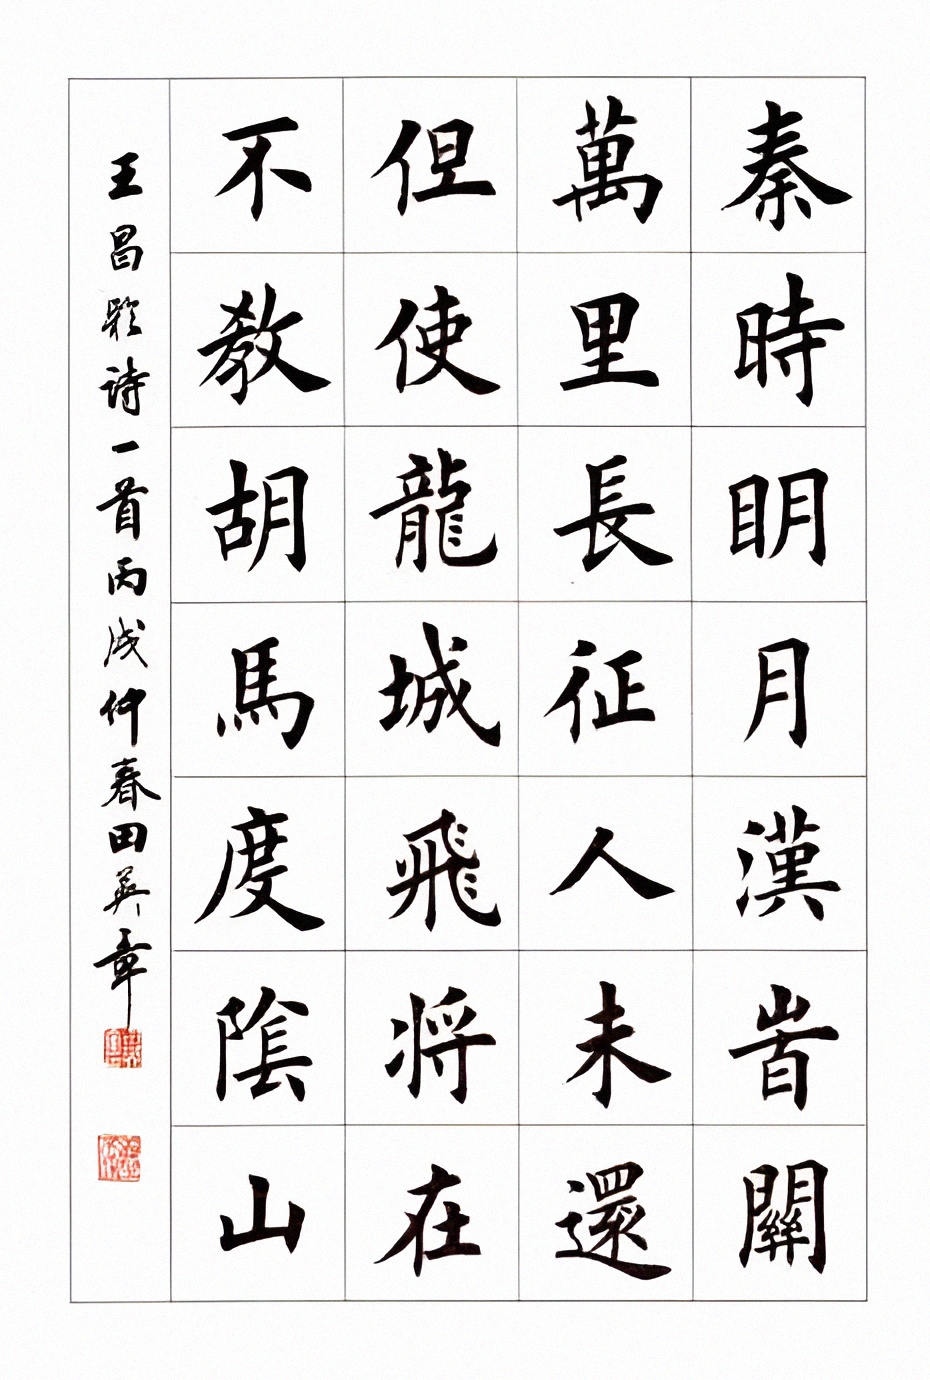 秦時眀月漢旹關
萬里長征人未還
但使龍城飛将在
不教胡馬度隂山
王昌齡诗一首丙戌仲春田英章